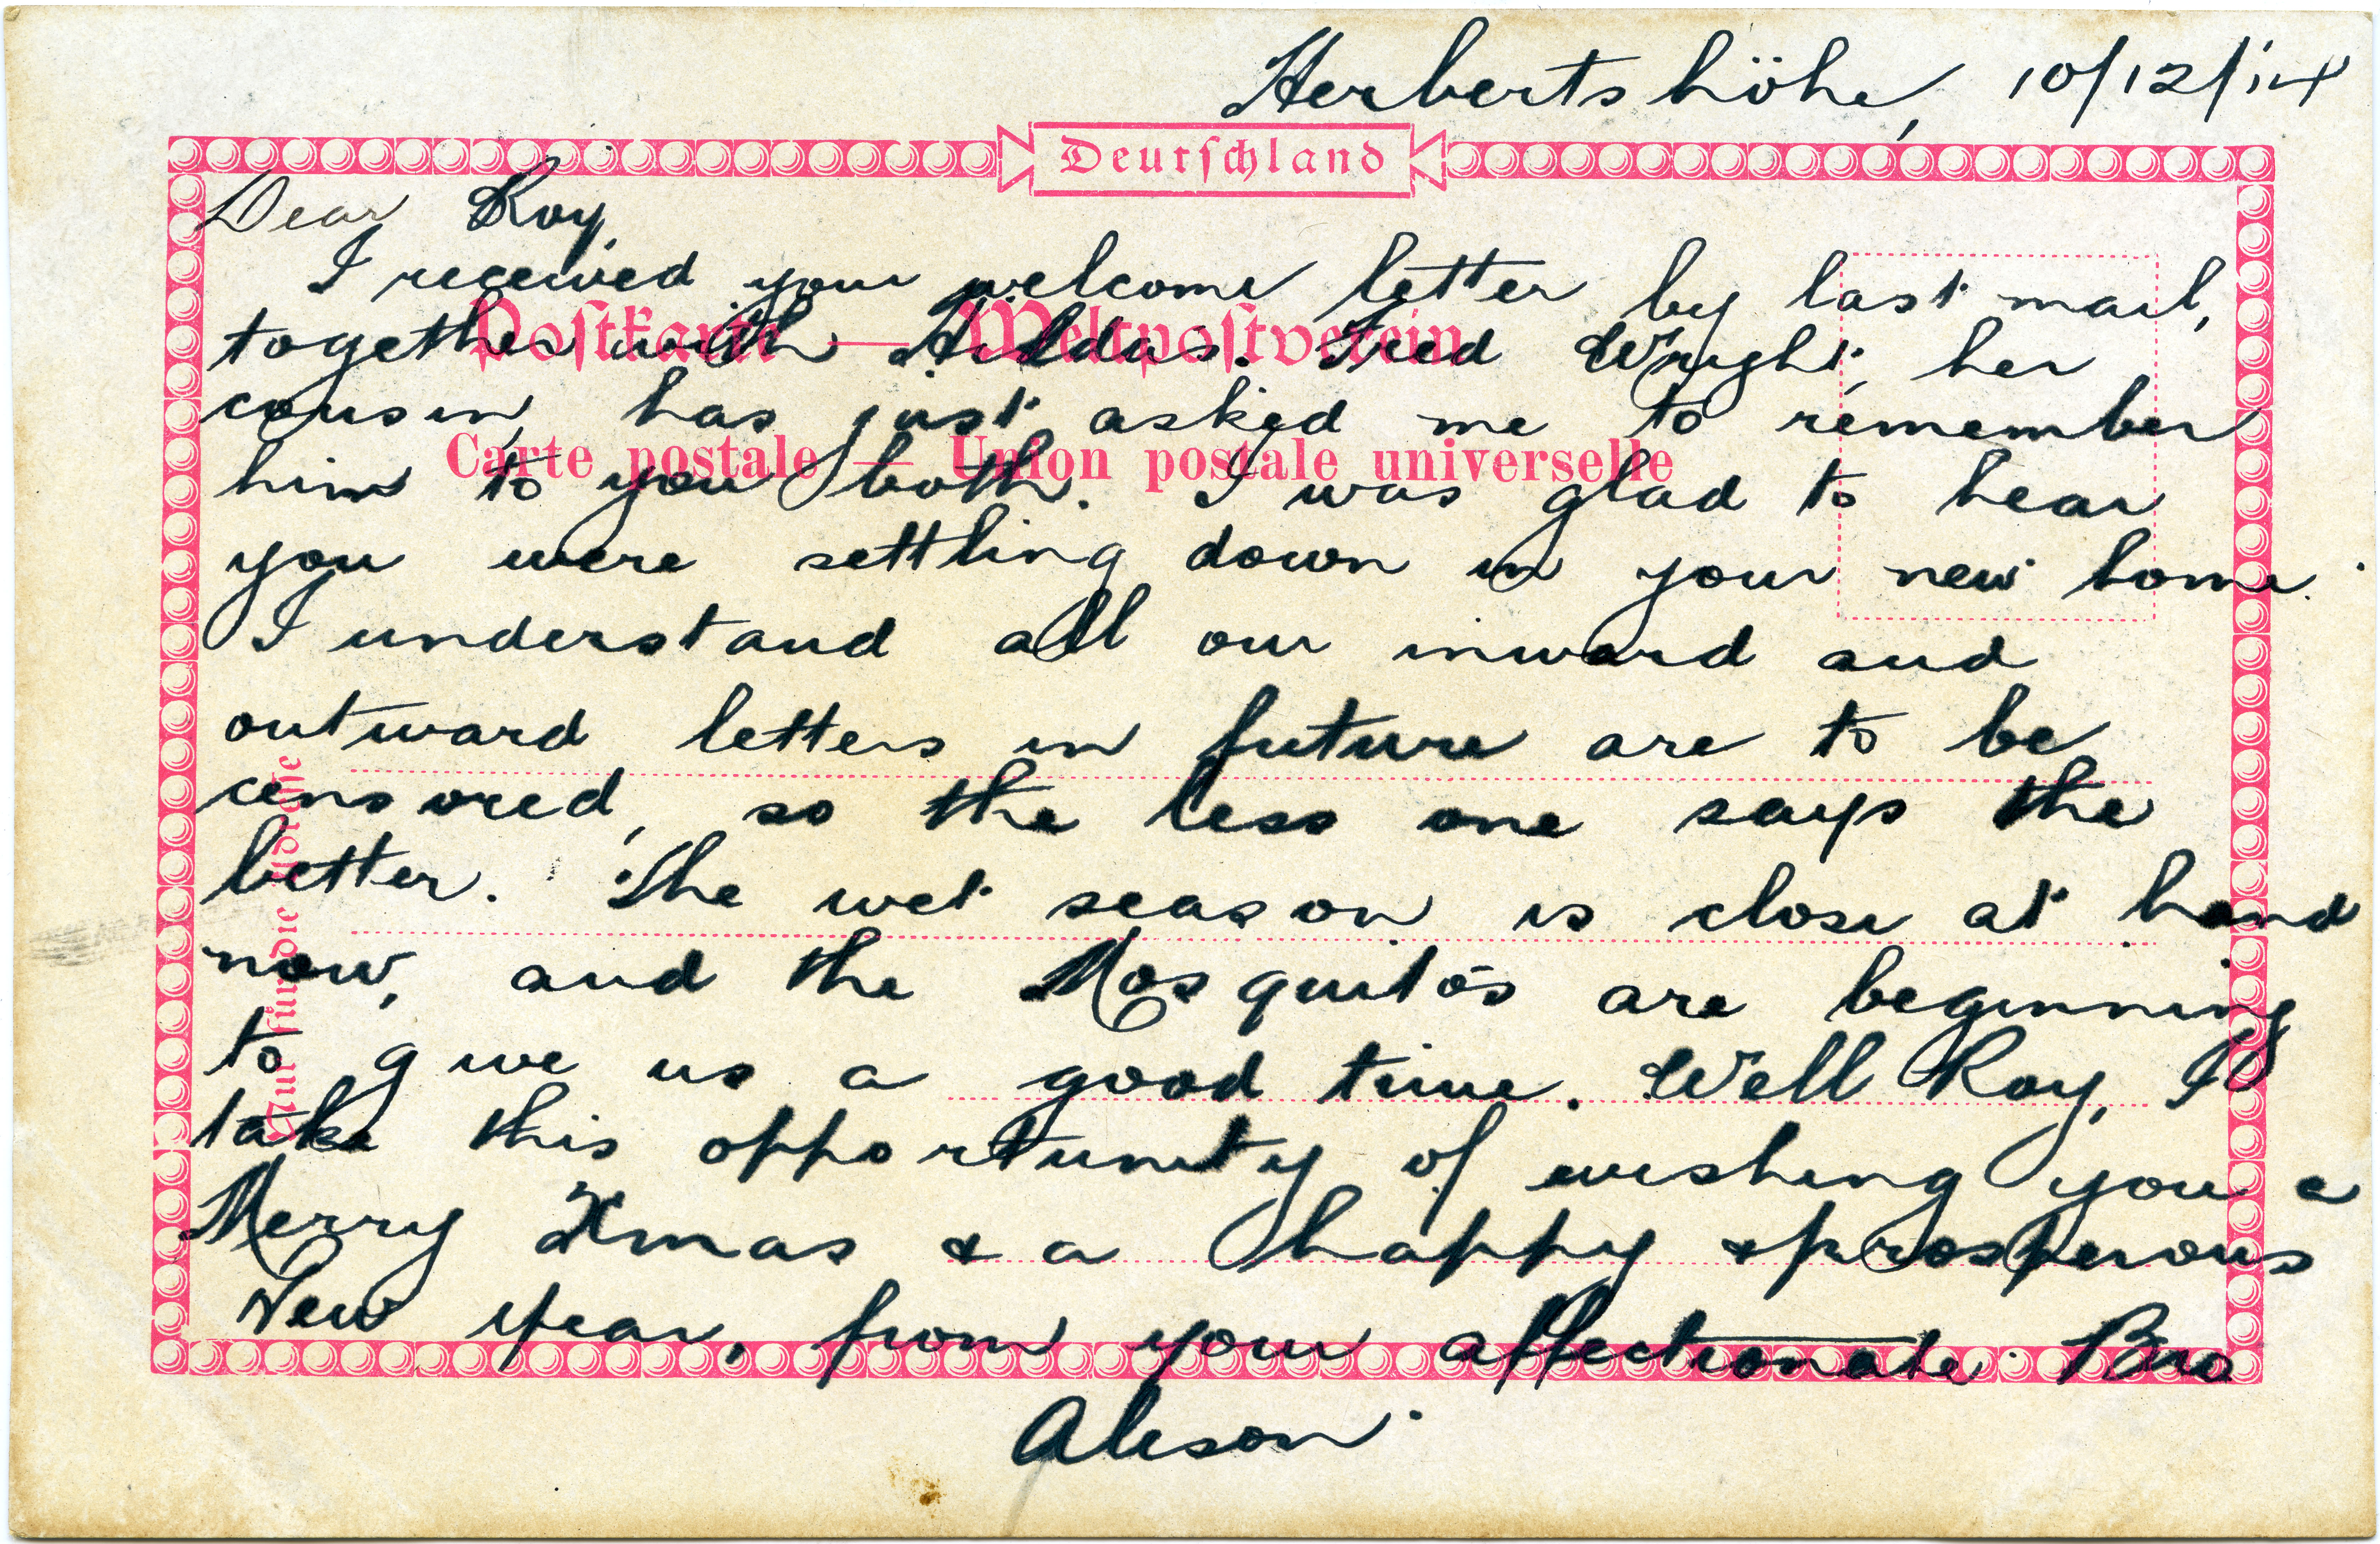 Herbertshöhe, 10/12/14
Deutschland
Dear Roy,
I received your welcome letter by last mail,
Postkarte — Weltpostverein
together with Hildas. Fred Wright, her
cousin, has just asked me to remember
Carte postale — Union postale universelle
him to you both. I was glad to hear
you were settling down in your new home.
I understand all our inward and
outward letters in future are to be
censored, so the less one says the
better. The wet season is close at hand
now, and the Mosquito's are beginning
to give us a good time. Well Roy, I
take this opportunity of wishing you a
Merry Xmas & a happy & prosperous
New Year, from your affectionate Bro
Alison
Nur für die Adresse